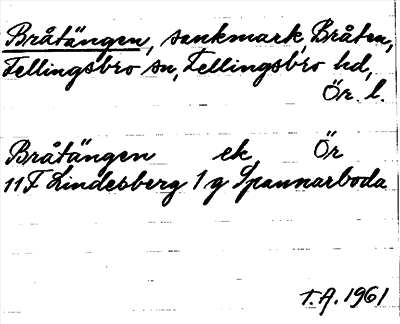 Bråtängen, sankmark Bråten,
Fellingsbro sn, Fellingsbro hd,
Ör. l.
Bråtängen ek Ör
11F Lindesberg 1 g Spannarboda
T.A. 1961